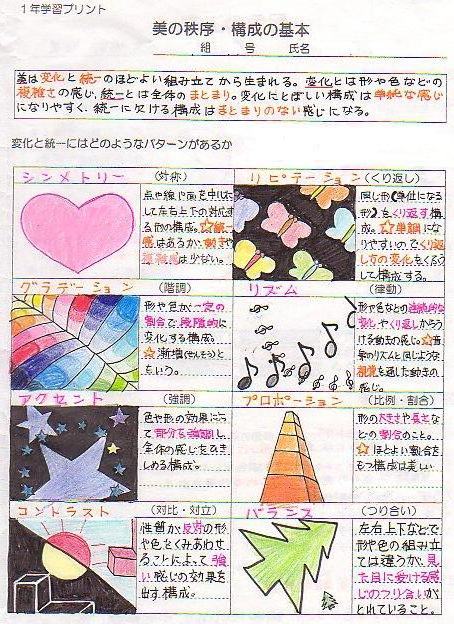 １年学習プリント
美の秩序・構成の基本
組 号 氏名
美は変化と統一のほどよい組み立てから生まれる。変化とは形や色などの
複雑さの感じ、統一とは全体のまとまり。変化にとぼしい構成は単純な感じ
になりやすく、統一に欠ける構成はまとまりのない感じになる。
変化と統一にはどのようなパターンがあるか
シンメトリー (対称)
点や線や面を中心に
して左右上下の対応す
る形の構成。☆統一
感はあるが、動きや
複雑感は少ない。
リピテーション (くり返し)
同じ形(単位になる
形)をくり返す構
成。☆単調に
なりやすいのでくり返
し方の変化もくふう
して構成する。
グラデーション (階調)
形や色が一定の
割合で段階的に
変化する構成。
☆漸増(ぜんぞう)と
もいう。
リズム (律動)
形や色などの連続的な
変化やくり返しからう
ける動きの感じ。☆音
楽のリズムと同じような
視覚を通した動きの
感じ。
アクセント (強調)
色や形の効果によっ
て部分を強調し、
全体の感じをひき
しめる構成。
プロポーション (比例・割合)
形の大きさや長さな
どの割合のこと。
☆ほどよい割合を
もつ構成は美しい
コントラスト (対比・対立)
性質が反対の形
や色をくみあわせ
ることによって強
い感じの効果を
出す構成。
バランス (つり合い)
左右上下などで
形や色の組み立
ては違うが、見
た目に受ける感
じのつり合いが
とれていること。